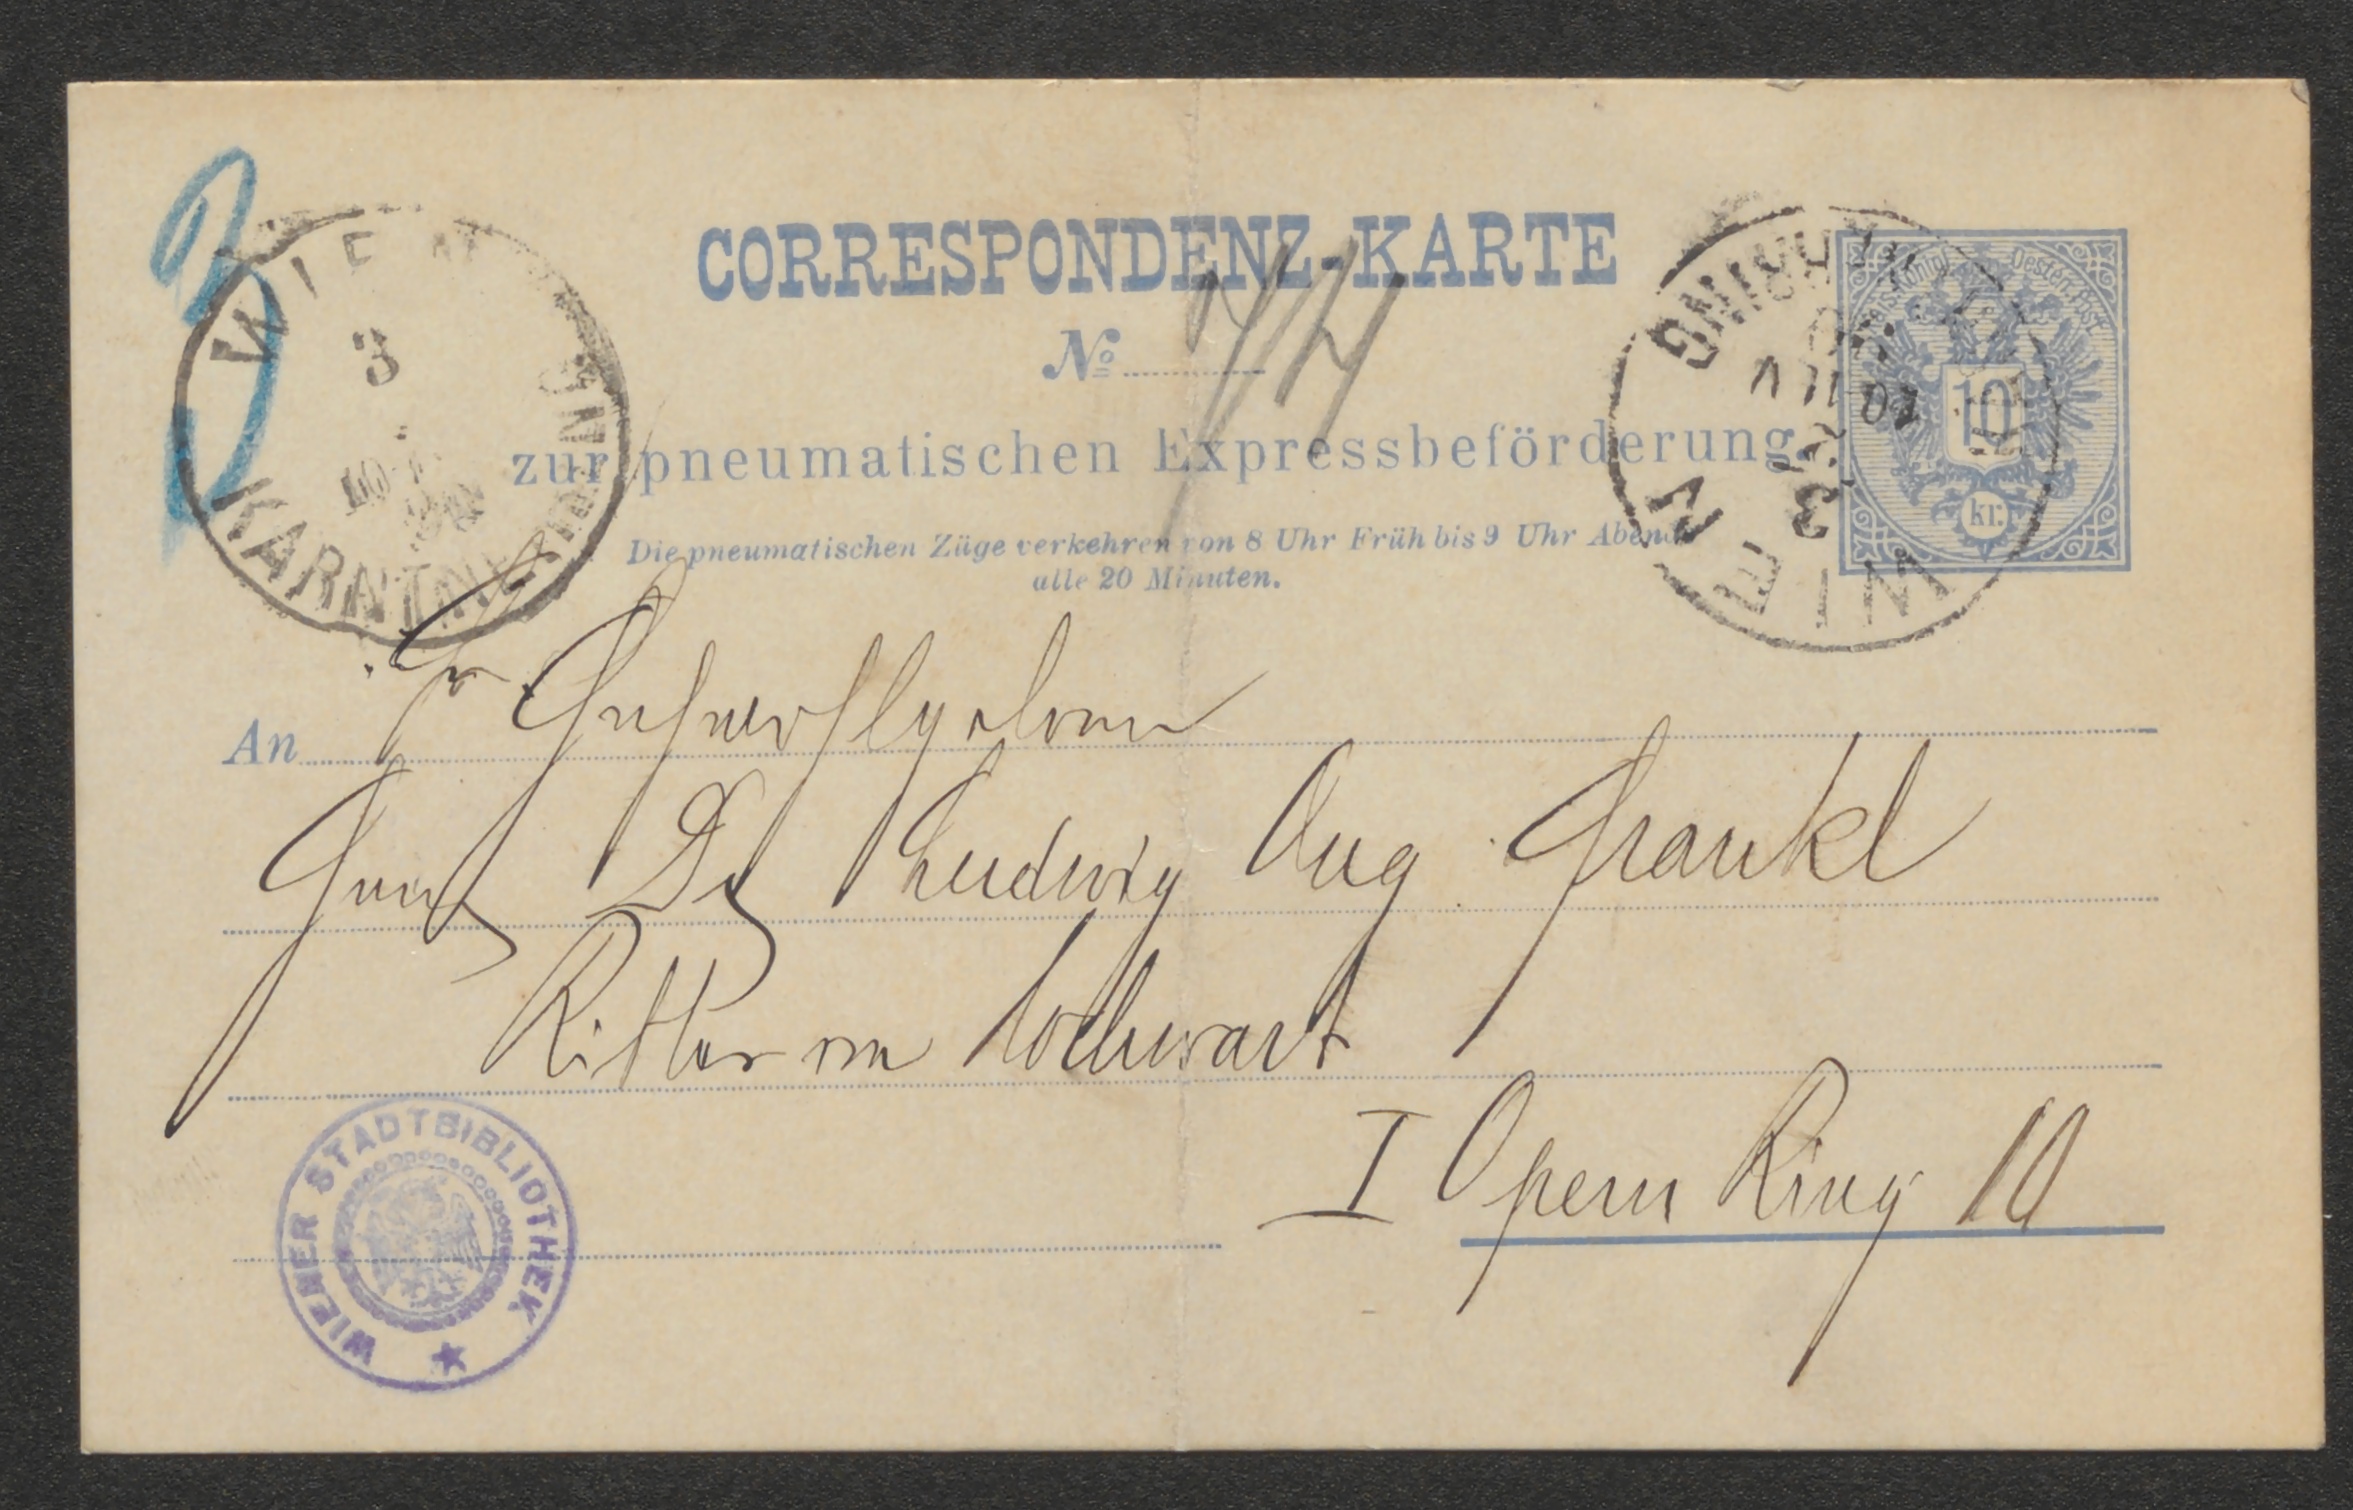 CORRESPONDENZ-KARTE
No 44
zur pneumatischen Expressbeförderung.
Die pneumatischen Züge verkehren von 8 Uhr Früh bis 9 Uhr Abends
alle 20 Minuten.
WIEN
3
KÄRNTNERRING
WIEN
3
KÄRNTNERRING
Kais. Königl. Oesterr. Post
10
kr.
An Sr Hochwohlgeboren
Herrn Dr Ludwig Aug Frankl
Ritter von Hochwart
I Opern Ring 10
WIENER STADTBIBLIOTHEK